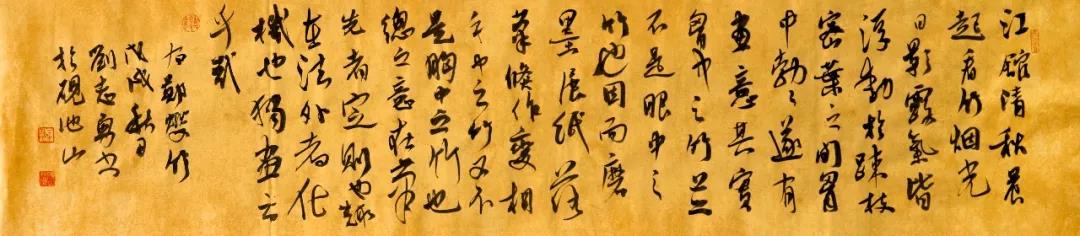 江館清秋晨
起看竹烟光
日影露氣皆
浮動於疎枝
密葉之間胸
中勃々遂有
畫意其實
胸中之竹並
不是眼中之
竹也因而磨
墨展紙落
筆倏作變相
手中之竹又不
是胸中之竹也
總之意在筆
先者定則也趣
在法外者化
機也獨畫云
乎哉
右鄭燮竹
戊戌秋日
劉志书
於硯池山